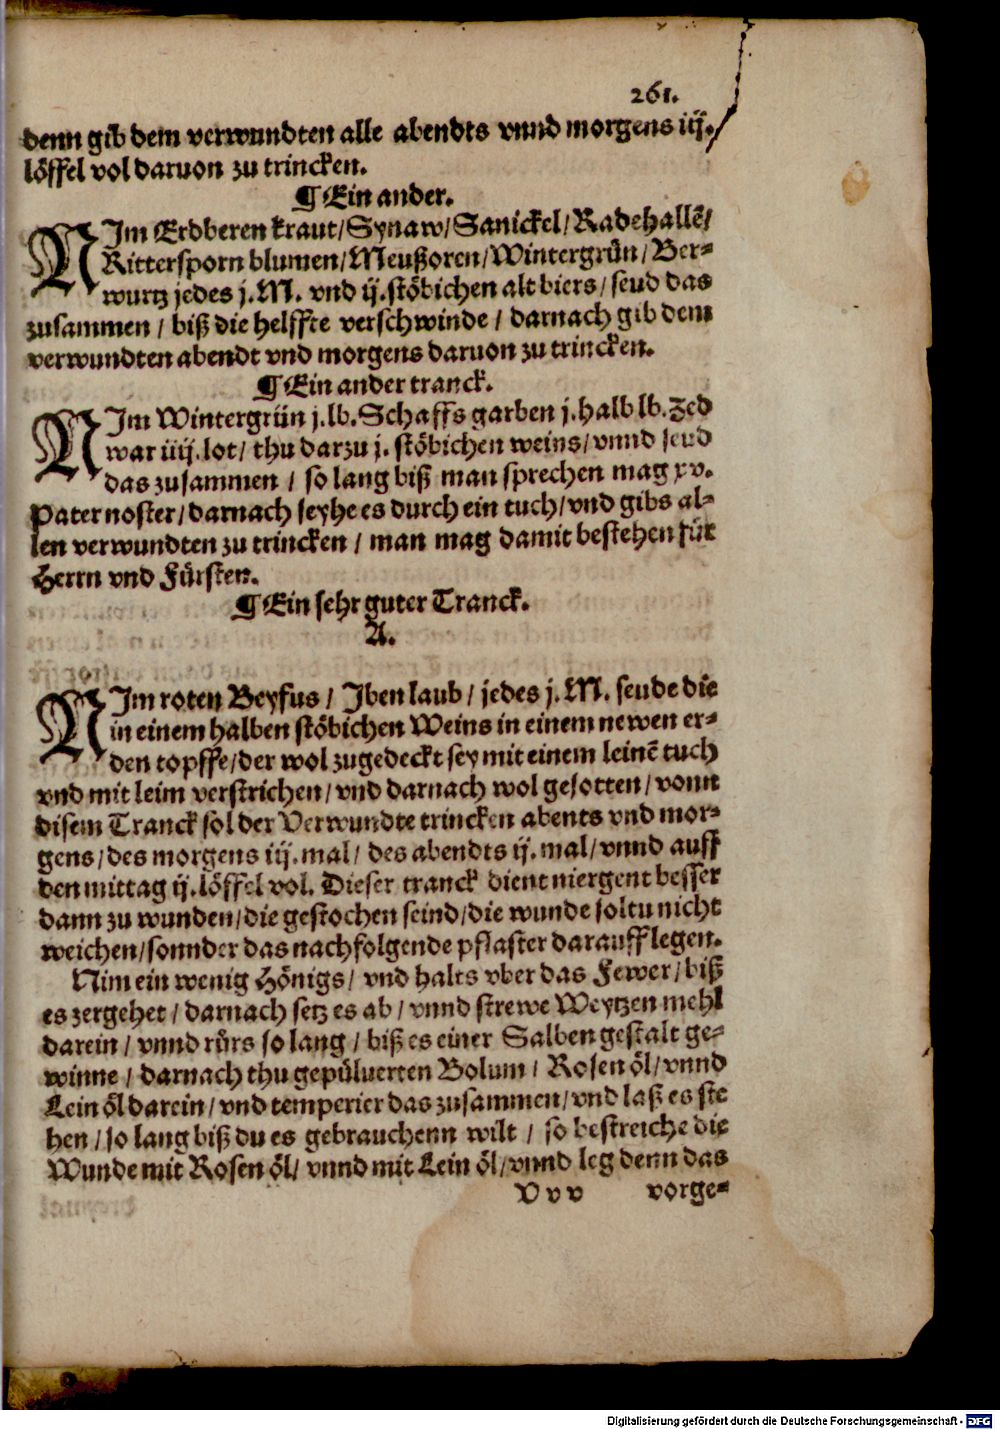 261.
denn gib dem verwundten alle abendts vnnd morgens iij.
löffel vol daruon zu trincken.
¶ Ein ander.
NIm Erdberen kraut/Synaw/Sanickel/Radehallẽ/
Rittersporn blumen/Meußoren/Wintergrün/Ber-
wurtz jedes j. M. vnd ij. stöbichen alt biers/seud das
zusammen / biß die helffte verschwinde / darnach gib dem
verwundten abendt vnd morgens daruon zu trincken.
¶ Ein ander tranck.
NIm Wintergrün j. lb. Schaffs garben j. halb lb. Zed
war iiij. lot/ thu darzu j. stöbichen weins/vnnd seud
das zusammen / so lang biß man sprechen mag xv.
Pater noster/darnach seyhe es durch ein tuch/vnd gibs al-
len verwundten zu trincken / man mag damit bestehen für
Herrn vnd Fürsten.
¶ Ein sehr guter Tranck.
A.
NIm roten Beyfus / Jben laub / jedes j. M. seude die
in einem halben stöbichen Weins in einem newen er-
den topffe/der wol zugedeckt sey mit einem leinẽ tuch
vnd mit leim verstrichen/vnd darnach wol gesotten/vonn
disem Tranck sol der Verwundte trincken abents vnd mor-
gens/des morgens iij. mal/ des abendts ij. mal/vnnd auff
den mittag ij. löffel vol. Dieser tranck dient niergent besser
dann zu wunden/die gestochen seind/die wunde soltu nicht
weichen/sonnder das nachfolgende pflaster darauff legen.
Nim ein wenig Hönigs/ vnd halts vber das Fewer/biß
es zergehet / darnach setz es ab / vnnd strewe Weytzen mehl
darein / vnnd rürs so lang / biß es einer Salben gestalt ge-
winne / darnach thu gepülverten Bolum / Rosen öl/vnnd
Lein öl darein/vnd temperier das zusammen/vnd laß es ste
hen /so lang biß du es gebrauchenn wilt / so bestreiche die
Wunde mit Rosen öl/ vnnd mit Lein öl/vnnd leg denn das
V v v vorge-
Digitalisierung gefördert durch die Deutsche Forschungsgemeinschaft - DFG